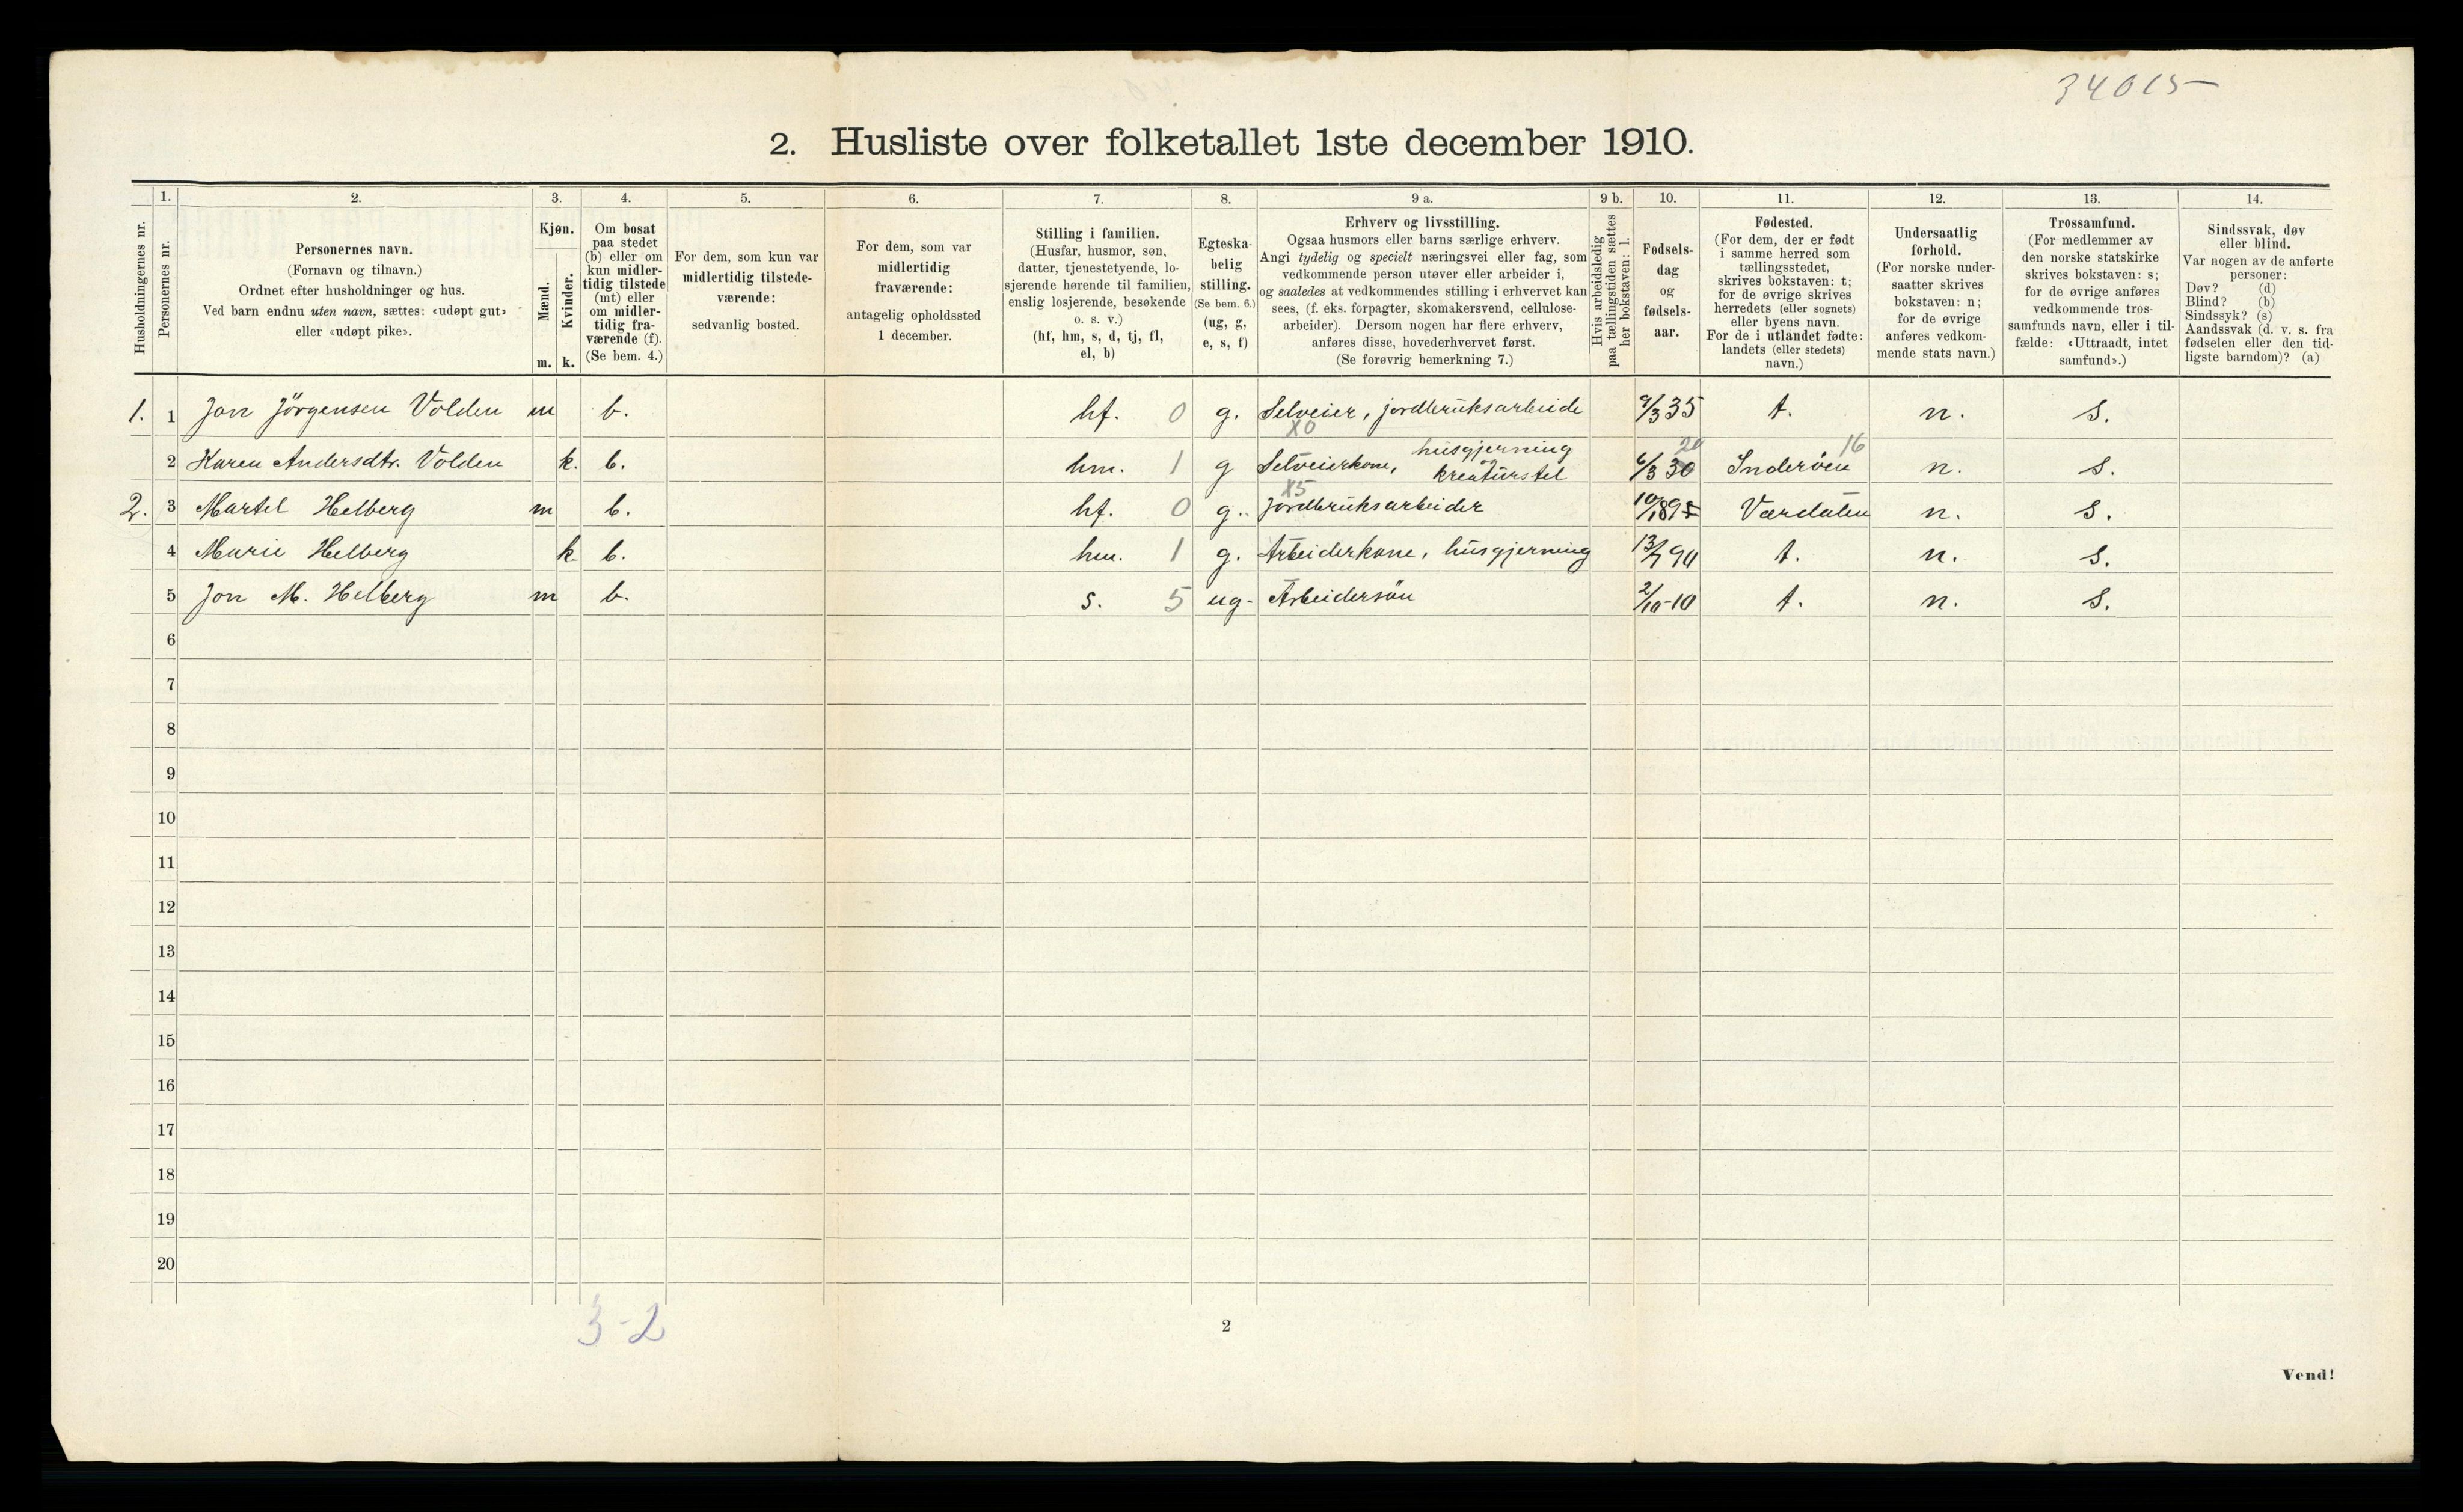 34015
2. Husliste over folketallet 1ste december 1910.
Husholdningernes nr.
1.
Personernes nr.
2.
Personernes navn.
(Fornavn og tilnavn.)
Ordnet efter husholdninger og hus.
Ved barn endnu uten navn, sættes: «udøpt gut»
eller «udøpt pike».
3.
Kjøn.
Mænd.
Kvinder.
m. k.
4.
Om bosat
paa stedet
(b) eller om
kun midler-
tidig tilstede
(mt) eller
om midler-
tidig fra-
værende (f).
(Se bem. 4.)
5.
For dem, som kun var
midlertidig tilstede-
værende:
sedvanlig bosted.
6.
For dem, som var
midlertidig
fraværende:
antagelig opholdssted
1 december.
7.
Stilling i familien.
(Husfar, husmor, søn,
datter, tjenestetyende, lo-
sjerende hørende til familien,
enslig losjerende, besøkende
o. s. v.)
(hf, hm, s, d, tj, fl,
el, b)
8.
Egteska-
belig
stilling.
(Se bem. 6.)
(ug, g,
e, s, f)
9 a.
Erhverv og livsstilling.
Ogsaa husmors eller barns særlige erhverv.
Angi tydelig og specielt næringsvei eller fag, som
vedkommende person utøver eller arbeider i,
og saaledes at vedkommendes stilling i erhvervet kan
sees, (f. eks. forpagter, skomakersvend, cellulose-
arbeider). Dersom nogen har flere erhverv,
anføres disse, hovederhvervet først.
(Se forøvrig bemerkning 7.)
9 b.
Hvis arbeidsledig
paa tællingstiden sættes
her bokstaven: l.
10.
Fødsels-
dag
og
fødsels-
aar.
11.
Fødested.
(For dem, der er født
i samme herred som
tællingsstedet,
skrives bokstaven: t;
for de øvrige skrives
herredets (eller sognets)
eller byens navn.
For de i utlandet fødte:
landets (eller stedets)
navn.)
12.
Undersaatlig
forhold.
(For norske under-
saatter skrives
bokstaven: n;
for de øvrige
anføres vedkom-
mende stats navn.)
13.
Trossamfund.
(For medlemmer av
den norske statskirke
skrives bokstaven: s;
for de øvrige anføres
vedkommende tros-
samfunds navn, eller i til-
fælde: «Uttraadt, intet
samfund».)
14.
Sindssvak, døv
eller blind.
Var nogen av de anførte
personer:
Døv? (d)
Blind? (b)
Sindssyk? (s)
Aandssvak (d. v. s. fra
fødselen eller den tid-
ligste barndom)? (a)
1. 1 Jon Jörgensen Volden m b. hf. 0 g. Selveier, jordbruksarbeide 9/3 35 t. n. s.
X0
2 Karen Andersdtr. Volden k. b. hm. 1 g Selveierkone, husgjerning og kreaturstel 6/3 30 20 Inderöen 16 n. s.
X5
2. 3 Martel Helberg m b. hf. 0 g. Jordbruksarbeider 10/1 89 Værdalen n. s.
4 Marie Helberg k. b. hm. 1 g. Arbeiderkone, husgjerning 13/7 90 t. n. s.
5 Jon M. Helberg m b. s. 5 ug- Arbeidersön 2/10-10 t. n. s.
6
7
8
9
10
11
12
13
14
15
16
17
18
19
20
3-2
2
Vend!